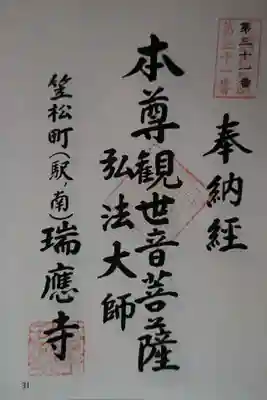 第三十一番
奉納経
本尊観世音菩薩
弘法大師
笠松町(駅ノ南)瑞應寺
31